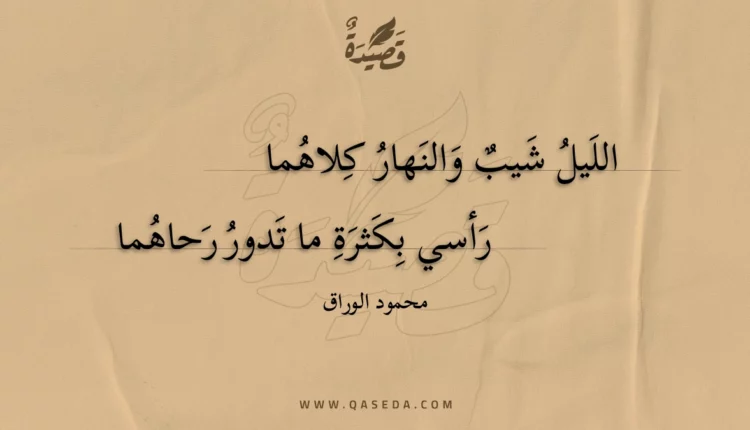 قَصِيدَةٌ
اللَيلُ شَيبٌ وَالنَهارُ كِلاهُما
رَأسي بِكَثرَةِ ما تَدورُ رَحاهُما
محمود الوراق
WWW.QASEDA.COM